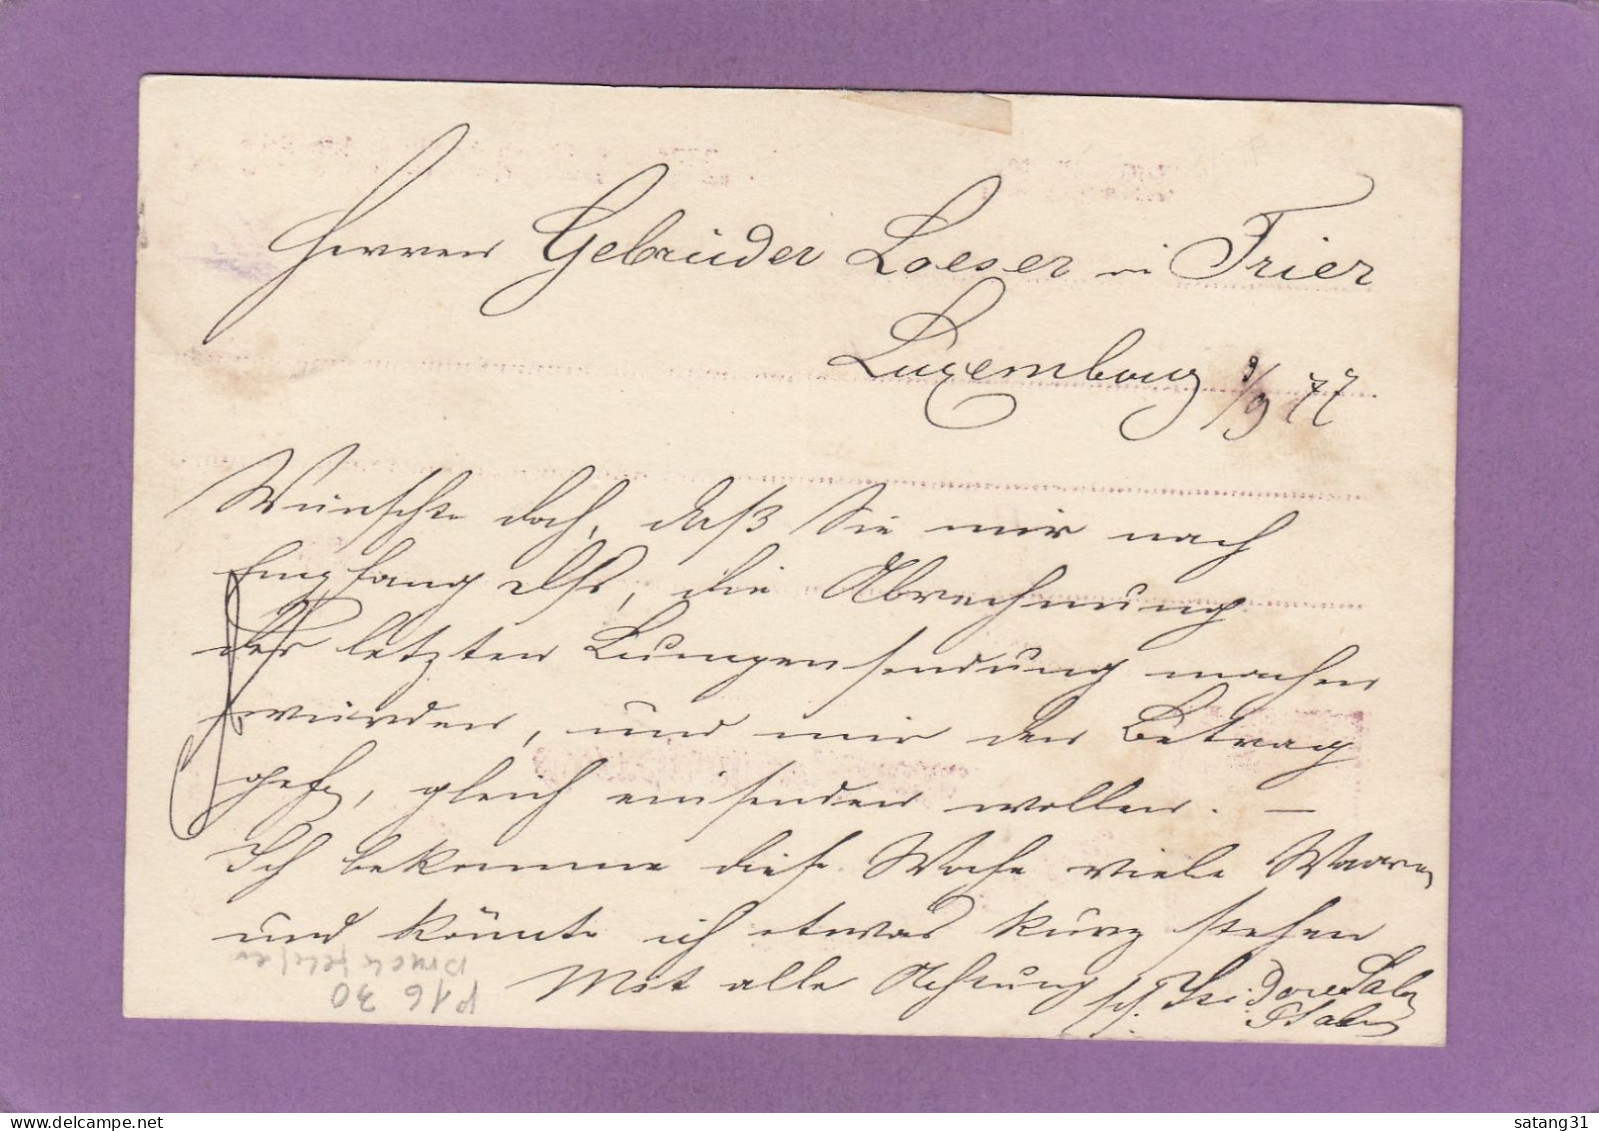 Herren Gebrüder Loeser in Trier
Luxembourg 9/9 77
Wünschte doch, daß Sie mir nach
Empfang dss, die Abrechnung
der letzten Lumpensendung machen
würden, und mir den Betrag
gefl, gleich einsenden wollen. —
Ich bekomme diese Woche viele Waaren
und könnte ich etwas kurz stehen
Mit alle Achtung Isidore
P16 30
satang31